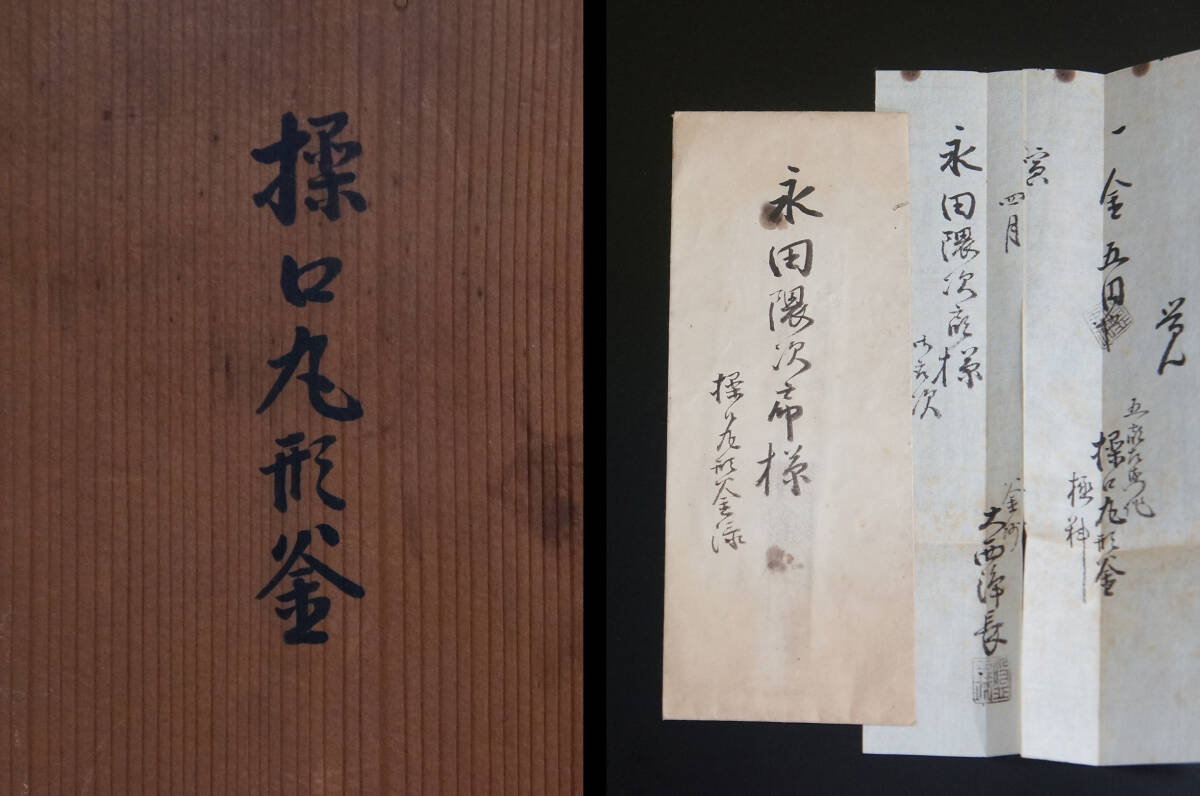 操口丸形釜
永田隈次郎様
操口丸形釜添
覚
一金五円也
五郎左衛門作
操口丸形釜
極料
寅四月
釜師
大西浄長
永田隈次郎様
御取次